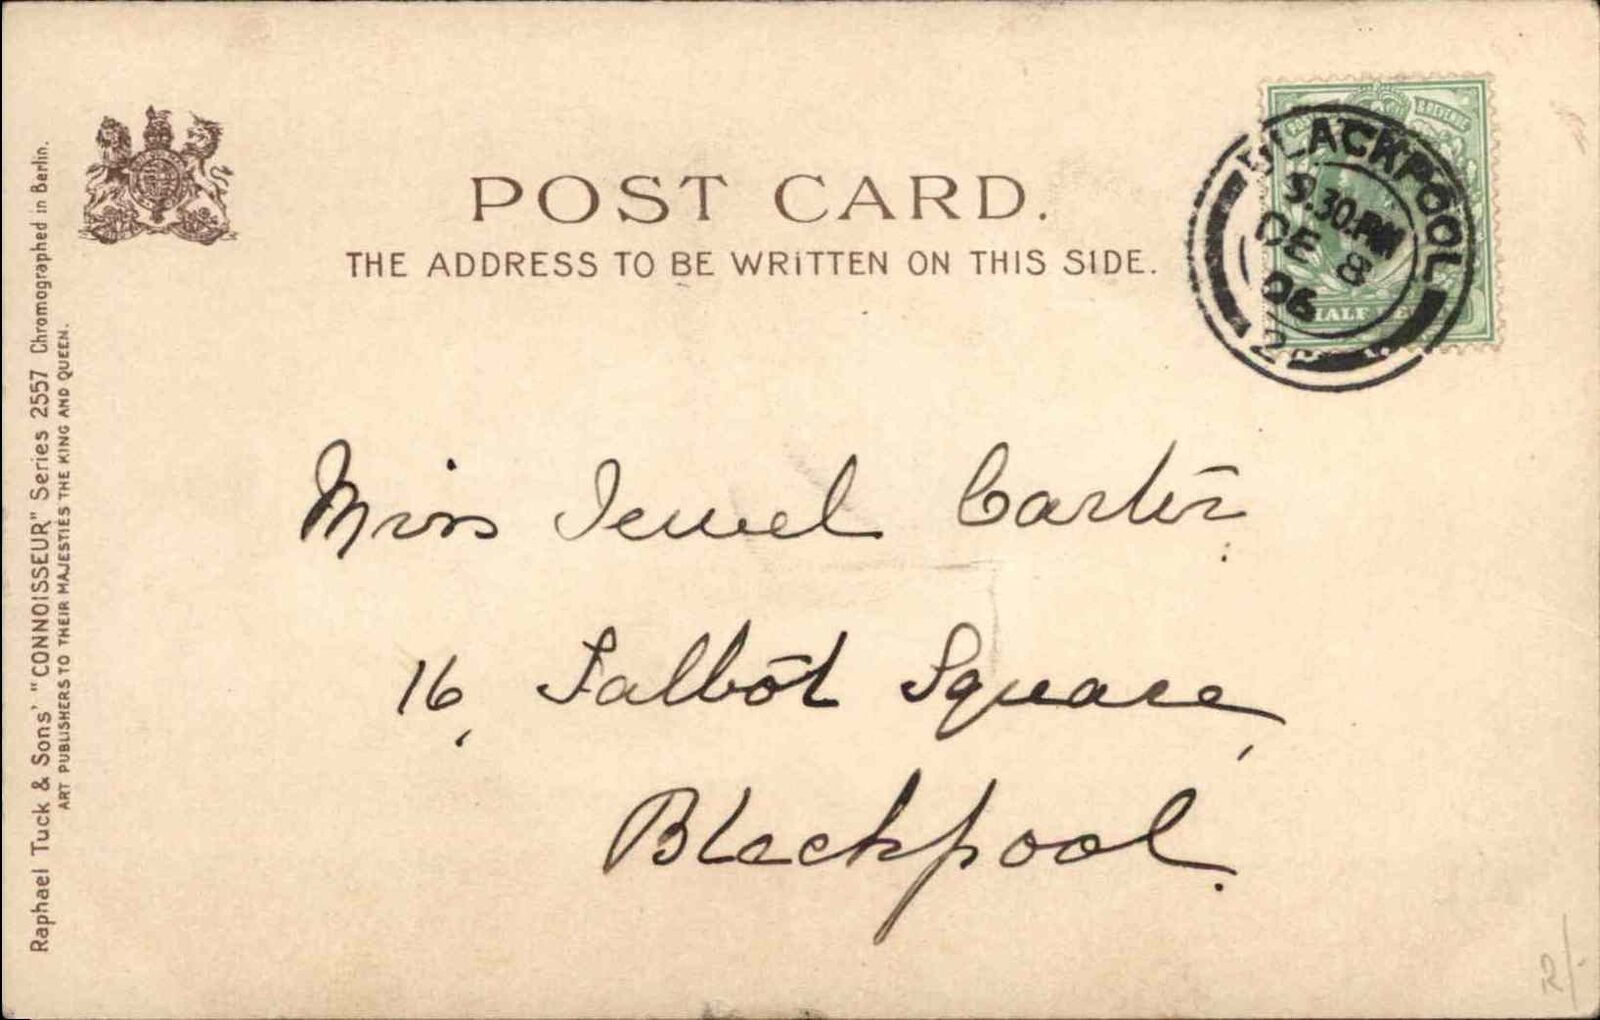 POST CARD.
THE ADDRESS TO BE WRITTEN ON THIS SIDE.
BLACKPOOL
9.30.PM
DE 8
06
HALF
Miss Jewel Carter.
16, Talbot Square,
Blackpool.
Raphael Tuck & Sons' "CONNOISSEUR" Series 2557 Chromographed in Berlin.
ART PUBLISHERS TO THEIR MAJESTIES THE KING AND QUEEN.